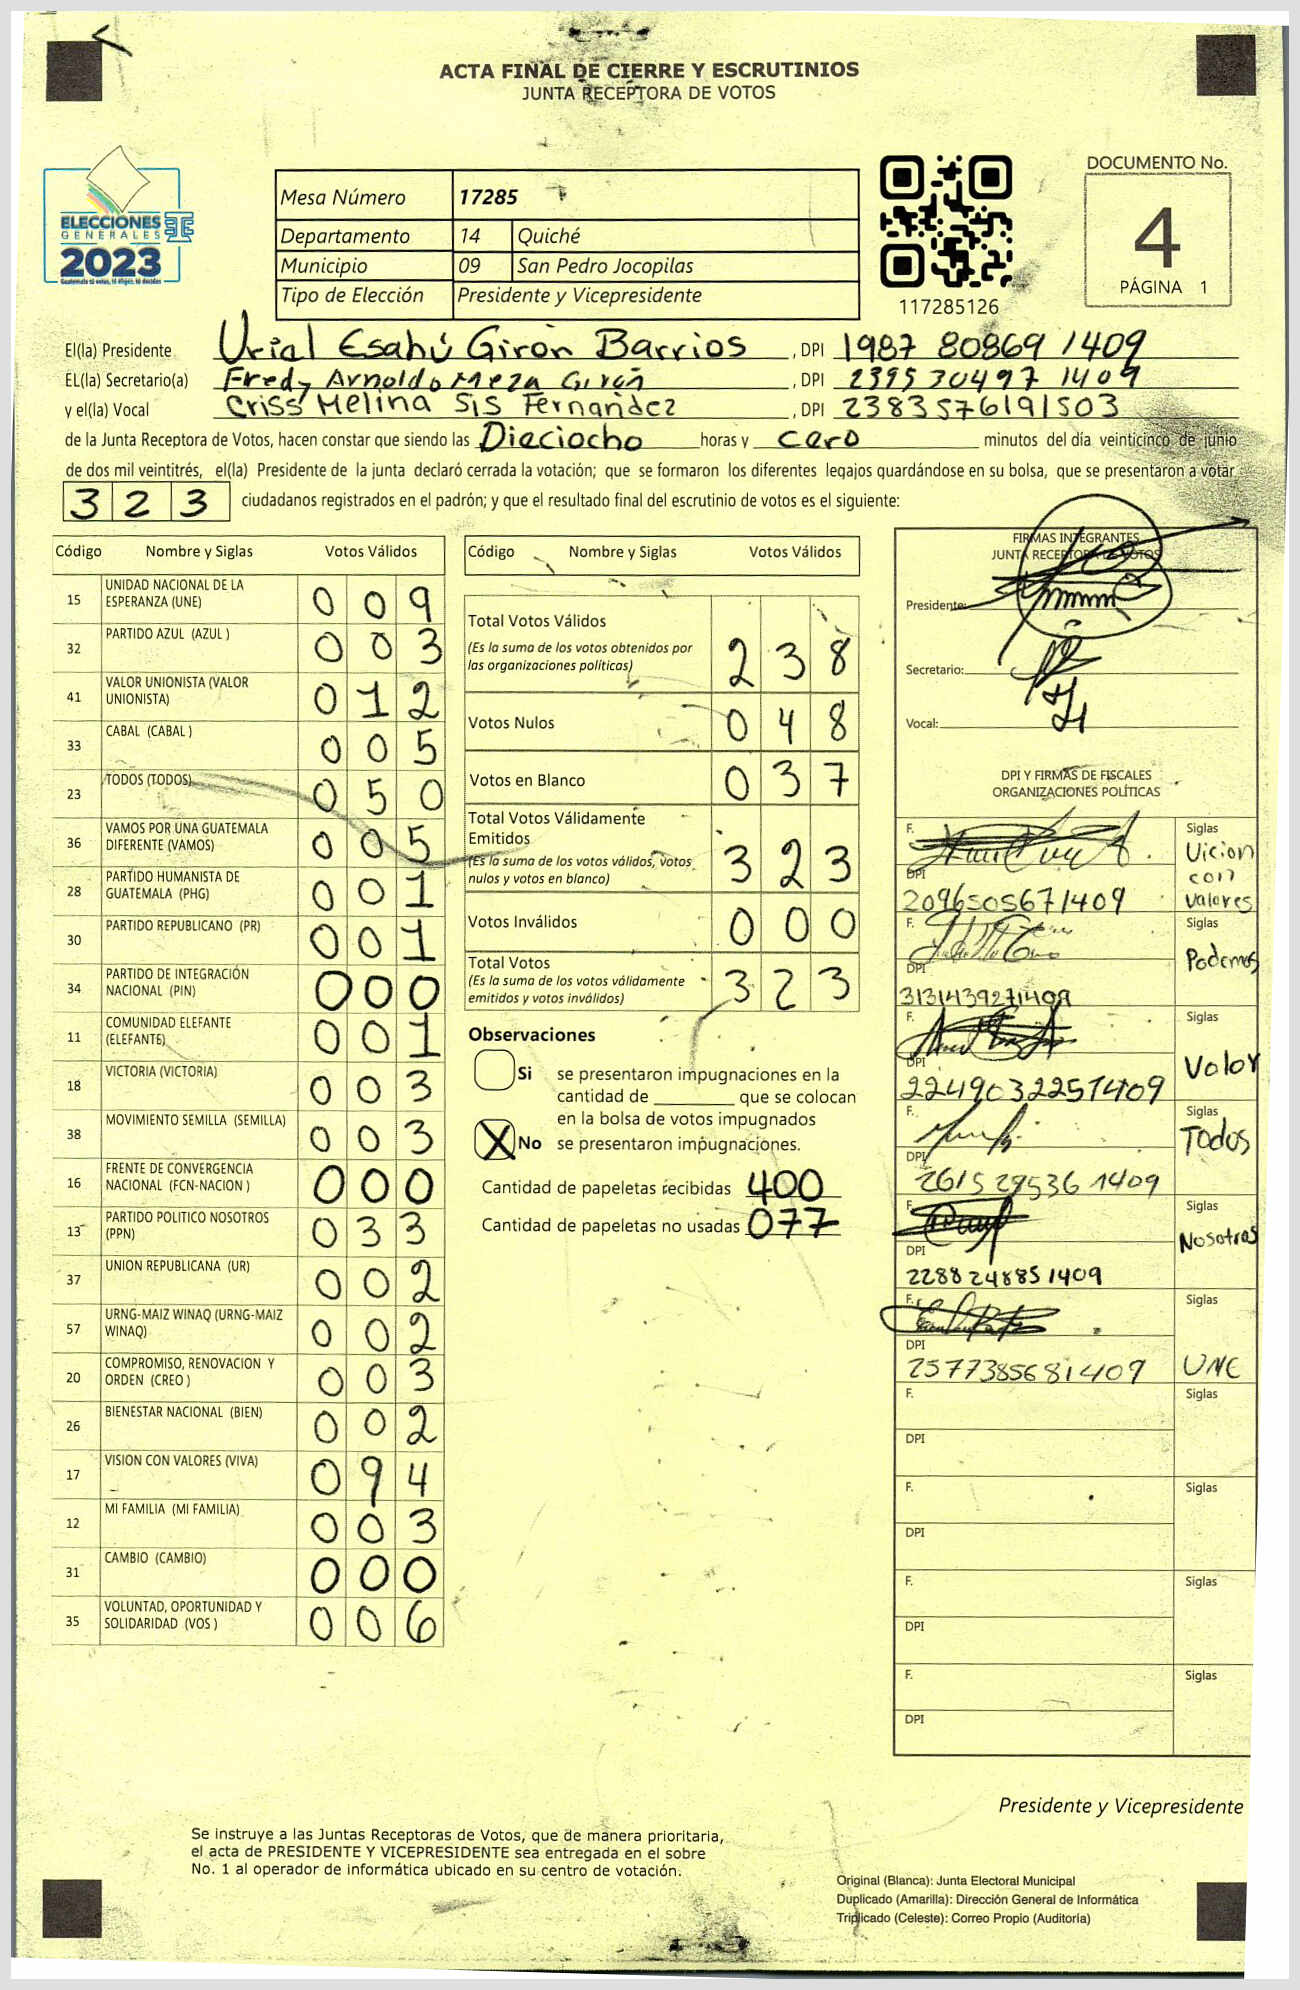 ACTA FINAL DE CIERRE Y ESCRUTINIOS
JUNTA RECEPTORA DE VOTOS
ELECCIONES
GENERALES
2023
Guatemala tú votas, tú eliges, tú decides
Mesa Número 17285
Departamento 14 Quiché
Municipio 09 San Pedro Jocopilas
Tipo de Elección Presidente y Vicepresidente
117285126
DOCUMENTO No.
4
PÁGINA 1
El(la) Presidente Urial Esahú Girón Barrios, DPI 1987 80869 1409
EL(la) Secretario(a) Fredy Arnoldo Meza Girón, DPI 2395 30497 1409
y el(la) Vocal Criss Melina Sis Fernandez, DPI 2383576191503
de la Junta Receptora de Votos, hacen constar que siendo las Dieciocho horas y cero minutos del día veinticinco de junio
de dos mil veintitrés, el(la) Presidente de la junta declaró cerrada la votación; que se formaron los diferentes legajos quardándose en su bolsa, que se presentaron a votar
323 ciudadanos registrados en el padrón; y que el resultado final del escrutinio de votos es el siguiente:
Código Nombre y Siglas Votos Válidos
15 UNIDAD NACIONAL DE LA ESPERANZA (UNE) 009
32 PARTIDO AZUL (AZUL ) 003
41 VALOR UNIONISTA (VALOR UNIONISTA) 012
33 CABAL (CABAL ) 005
23 TODOS (TODOS) 050
36 VAMOS POR UNA GUATEMALA DIFERENTE (VAMOS) 005
28 PARTIDO HUMANISTA DE GUATEMALA (PHG) 001
30 PARTIDO REPUBLICANO (PR) 001
34 PARTIDO DE INTEGRACIÓN NACIONAL (PIN) 000
11 COMUNIDAD ELEFANTE (ELEFANTE) 001
18 VICTORIA (VICTORIA) 003
38 MOVIMIENTO SEMILLA (SEMILLA) 003
16 FRENTE DE CONVERGENCIA NACIONAL (FCN-NACION ) 000
13 PARTIDO POLITICO NOSOTROS (PPN) 033
37 UNION REPUBLICANA (UR) 002
57 URNG-MAIZ WINAQ (URNG-MAIZ WINAQ) 002
20 COMPROMISO, RENOVACION Y ORDEN (CREO ) 003
26 BIENESTAR NACIONAL (BIEN) 002
17 VISION CON VALORES (VIVA) 094
12 MI FAMILIA (MI FAMILIA) 003
31 CAMBIO (CAMBIO) 000
35 VOLUNTAD, OPORTUNIDAD Y SOLIDARIDAD (VOS ) 006
Código Nombre y Siglas Votos Válidos
Total Votos Válidos
(Es la suma de los votos obtenidos por
las organizaciones políticas) 238
Votos Nulos 048
Votos en Blanco 037
Total Votos Válidamente
Emitidos
(Es la suma de los votos válidos, votos
nulos y votos en blanco) 323
Votos Inválidos 000
Total Votos
(Es la suma de los votos válidamente
emitidos y votos inválidos) 323
Observaciones
Si se presentaron impugnaciones en la
cantidad de ________ que se colocan
en la bolsa de votos impugnados
X No se presentaron impugnaciones.
Cantidad de papeletas recibidas 400
Cantidad de papeletas no usadas 077
FIRMAS INTEGRANTES
JUNTA RECEPTORA DE VOTOS
Presidente:
Secretario:
Vocal:
DPI Y FIRMAS DE FISCALES
ORGANIZACIONES POLÍTICAS
F. Siglas
Vicion
con
valores
DPI
2096505671409
F. Siglas
Podemos
DPI
3131439271409
F. Siglas
Valor
DPI
2249032251409
F. Siglas
Todos
DPI
2615 29536 1409
F. Siglas
Nosotros
DPI
2288248851409
F. Siglas
DPI
2577385681409 UNE
F. Siglas
DPI
F. Siglas
DPI
F. Siglas
DPI
F. Siglas
DPI
Presidente y Vicepresidente
Se instruye a las Juntas Receptoras de Votos, que de manera prioritaria,
el acta de PRESIDENTE Y VICEPRESIDENTE sea entregada en el sobre
No. 1 al operador de informática ubicado en su centro de votación.
Original (Blanca): Junta Electoral Municipal
Duplicado (Amarilla): Dirección General de Informática
Triplicado (Celeste): Correo Propio (Auditoría)